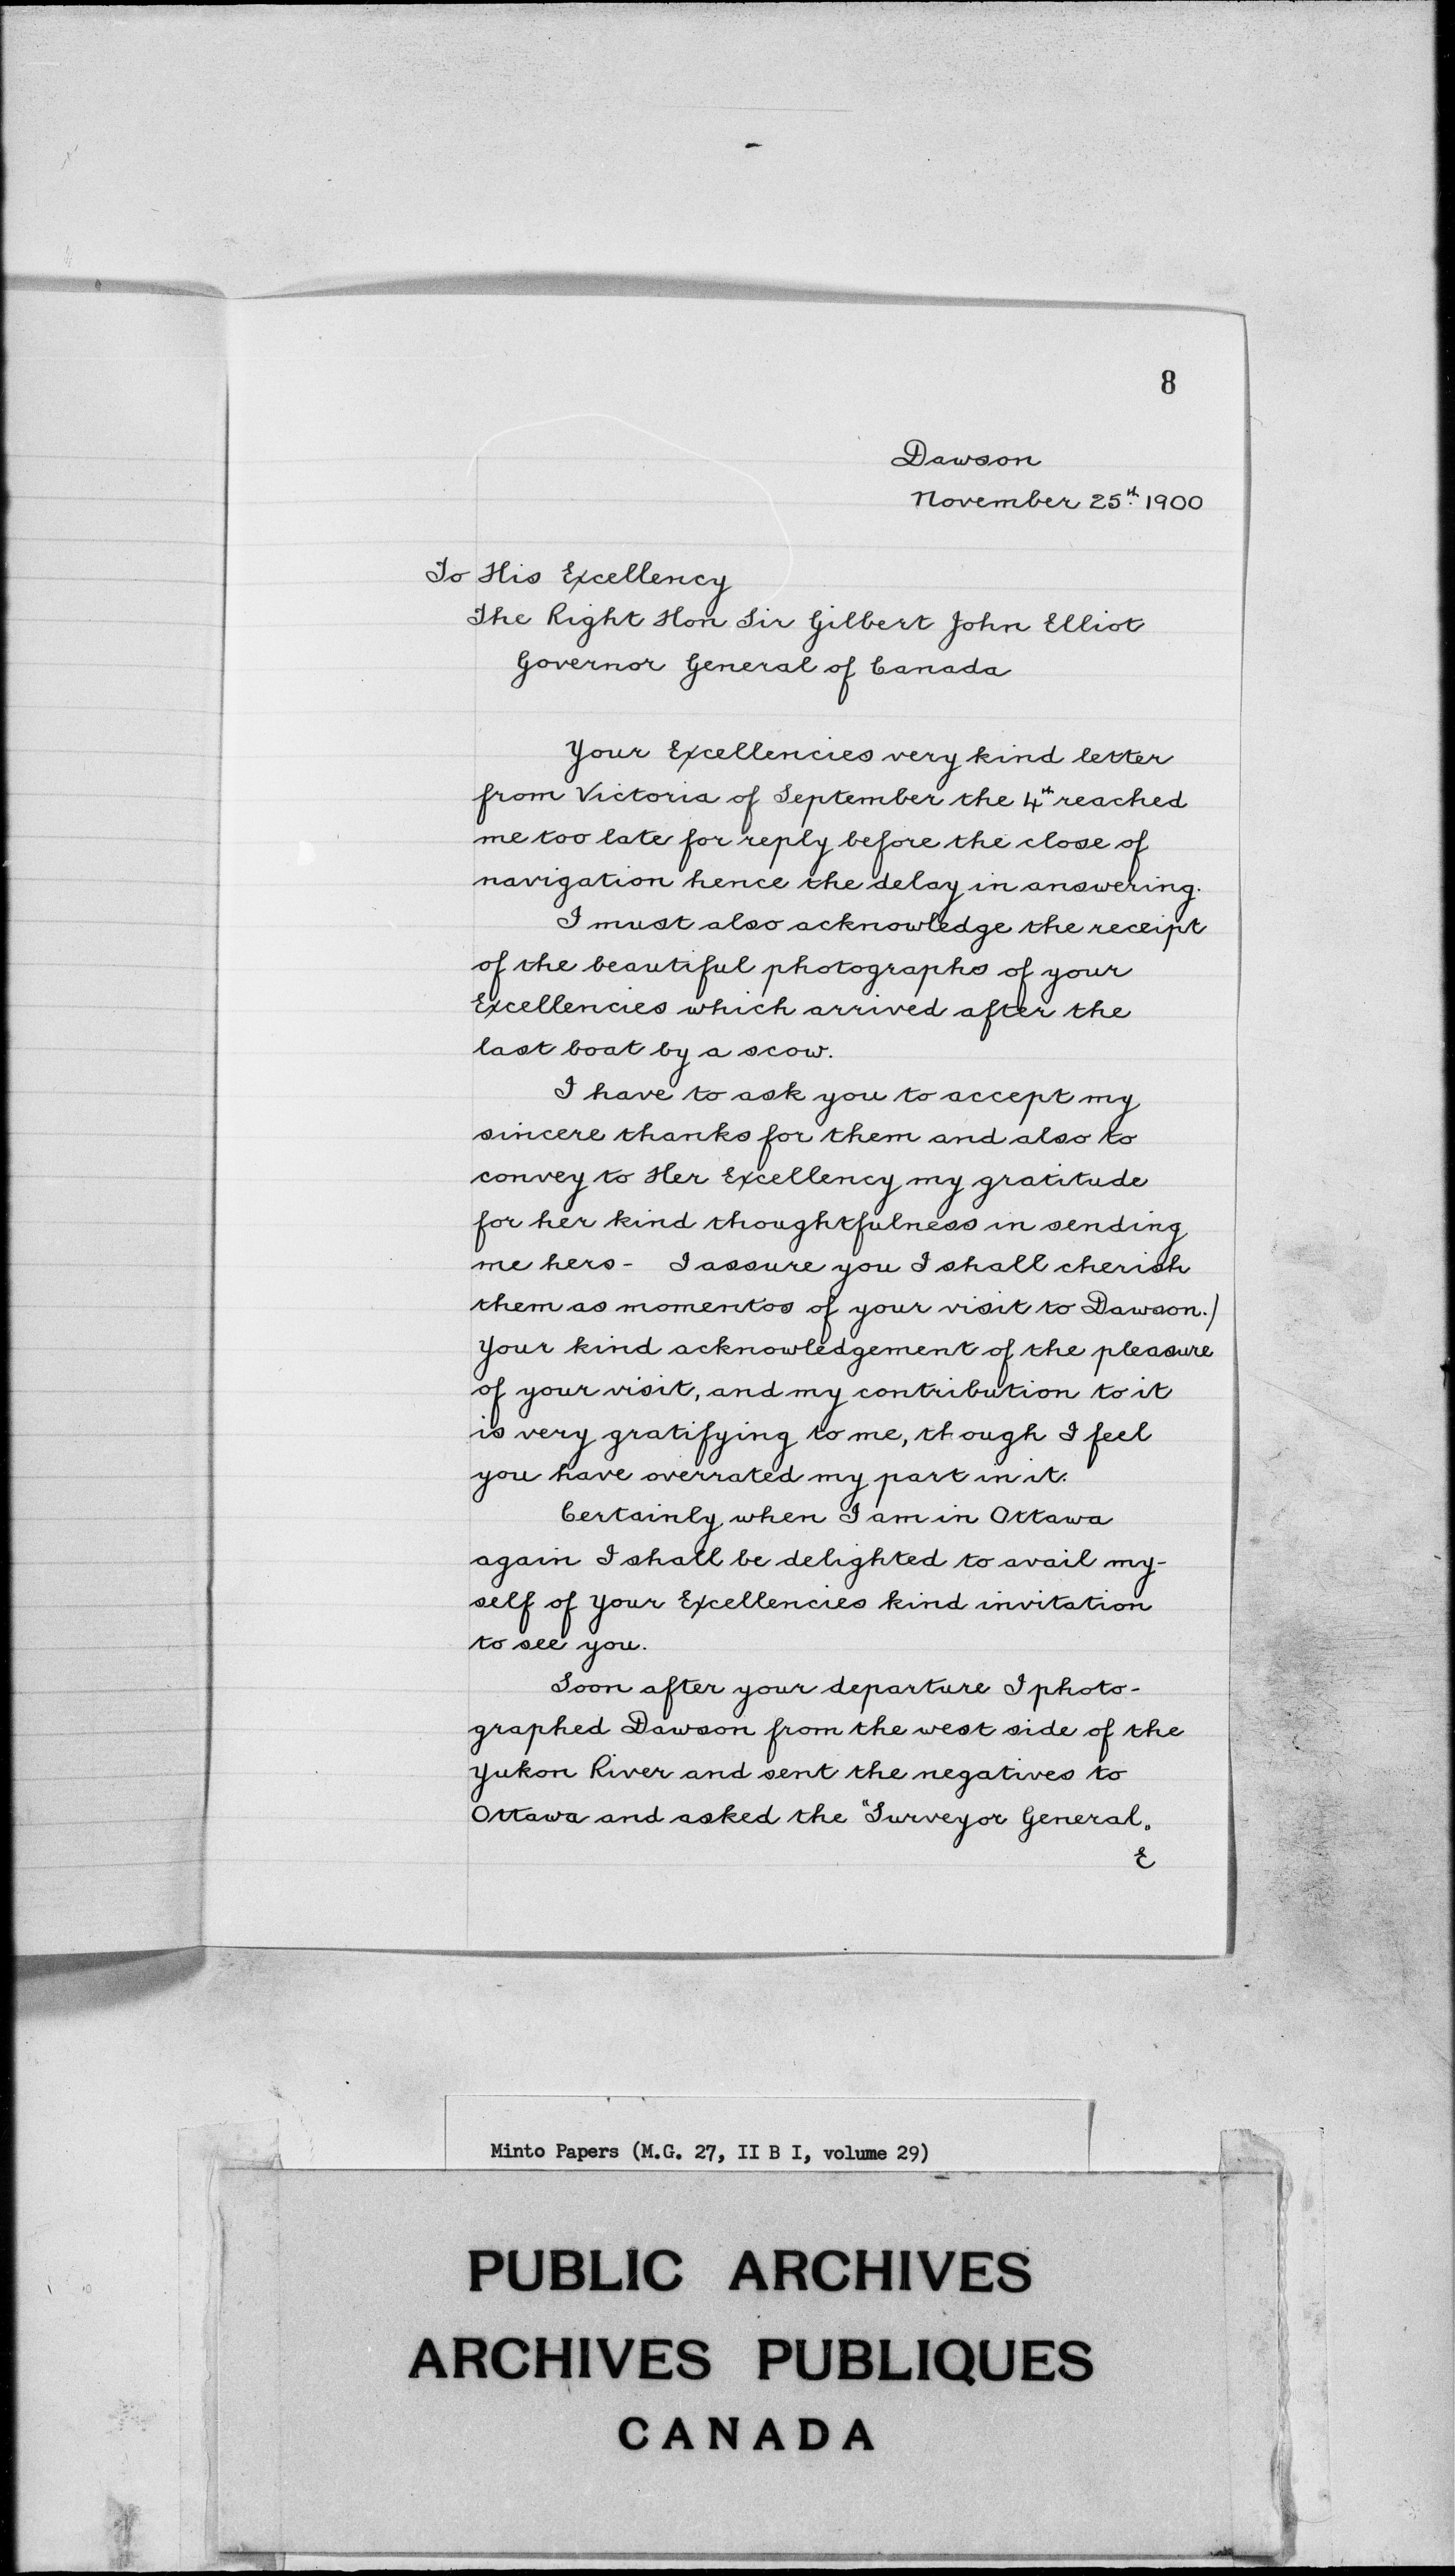 8
Dawson
November 25th 1900
To His Excellency
The Right Hon Sir Gilbert John Elliot
Governor General of Canada
Your Excellencies very kind letter
from Victoria of September the 4th reached
me too late for reply before the close of
navigation hence the delay in answering.
I must also acknowledge the receipt
of the beautiful photographs of your
Excellencies which arrived after the
last boat by a scow.
I have to ask you to accept my
sincere thanks for them and also to
convey to Her Excellency my gratitude
for her kind thoughtfulness in sending
me hers - I assure you I shall cherish
them as momentos of your visit to Dawson./
Your kind acknowledgement of the pleasure
of your visit, and my contribution to it
is very gratifying to me, though I feel
you have overrated my part in it.
Certainly when I am in Ottawa
again I shall be delighted to avail my-
self of Your Excellencies kind invitation
to see you.
Soon after your departure I photo-
graphed Dawson from the west side of the
Yukon River and sent the negatives to
Ottawa and asked the "Surveyor General"
E
Minto Papers (M.G. 27, II B I, volume 29)
PUBLIC ARCHIVES
ARCHIVES PUBLIQUES
CANADA